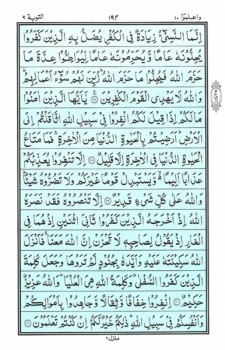 واعلموا ١٠ ١٩٣ التوبة ٩
اِنَّمَا النَّسِیْٓءُ زِیَادَةٌ فِی الْكُفْرِ یُضَلُّ بِهِ الَّذِیْنَ كَفَرُوْا
یُحِلُّوْنَهٗ عَامًا وَّیُحَرِّمُوْنَهٗ عَامًا لِّیُوَاطِـُٔوْا عِدَّةَ مَا
حَرَّمَ اللّٰهُ فَیُحِلُّوْا مَا حَرَّمَ اللّٰهُ ؕ زُیِّنَ لَهُمْ سُوْٓءُ اَعْمَالِهِمْ ؕ
وَاللّٰهُ لَا یَهْدِی الْقَوْمَ الْكٰفِرِیْنَ ۟ یٰۤاَیُّهَا الَّذِیْنَ اٰمَنُوْا
مَا لَكُمْ اِذَا قِیْلَ لَكُمُ انْفِرُوْا فِیْ سَبِیْلِ اللّٰهِ اثَّاقَلْتُمْ اِلَی
الْاَرْضِ ؕ اَرَضِیْتُمْ بِالْحَیٰوةِ الدُّنْیَا مِنَ الْاٰخِرَةِ ۚ فَمَا مَتَاعُ
الْحَیٰوةِ الدُّنْیَا فِی الْاٰخِرَةِ اِلَّا قَلِیْلٌ ۟ اِلَّا تَنْفِرُوْا یُعَذِّبْكُمْ
عَذَابًا اَلِیْمًا ۙ۬ وَّیَسْتَبْدِلْ قَوْمًا غَیْرَكُمْ وَلَا تَضُرُّوْهُ شَیْـًٔا ؕ
وَاللّٰهُ عَلٰی كُلِّ شَیْءٍ قَدِیْرٌ ۟ اِلَّا تَنْصُرُوْهُ فَقَدْ نَصَرَهُ
اللّٰهُ اِذْ اَخْرَجَهُ الَّذِیْنَ كَفَرُوْا ثَانِیَ اثْنَیْنِ اِذْ هُمَا فِی
الْغَارِ اِذْ یَقُوْلُ لِصَاحِبِهٖ لَا تَحْزَنْ اِنَّ اللّٰهَ مَعَنَا ۚ فَاَنْزَلَ
اللّٰهُ سَكِیْنَتَهٗ عَلَیْهِ وَاَیَّدَهٗ بِجُنُوْدٍ لَّمْ تَرَوْهَا وَجَعَلَ كَلِمَةَ
الَّذِیْنَ كَفَرُوا السُّفْلٰی ؕ وَكَلِمَةُ اللّٰهِ هِیَ الْعُلْیَا ؕ وَاللّٰهُ عَزِیْزٌ
حَكِیْمٌ ۟ اِنْفِرُوْا خِفَافًا وَّثِقَالًا وَّجَاهِدُوْا بِاَمْوَالِكُمْ
وَاَنْفُسِكُمْ فِیْ سَبِیْلِ اللّٰهِ ؕ ذٰلِكُمْ خَیْرٌ لَّكُمْ اِنْ كُنْتُمْ تَعْلَمُوْنَ ۟
منزل ٢